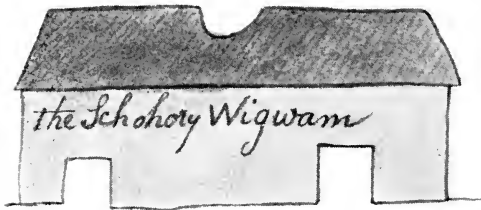 the Schohory Wigwam